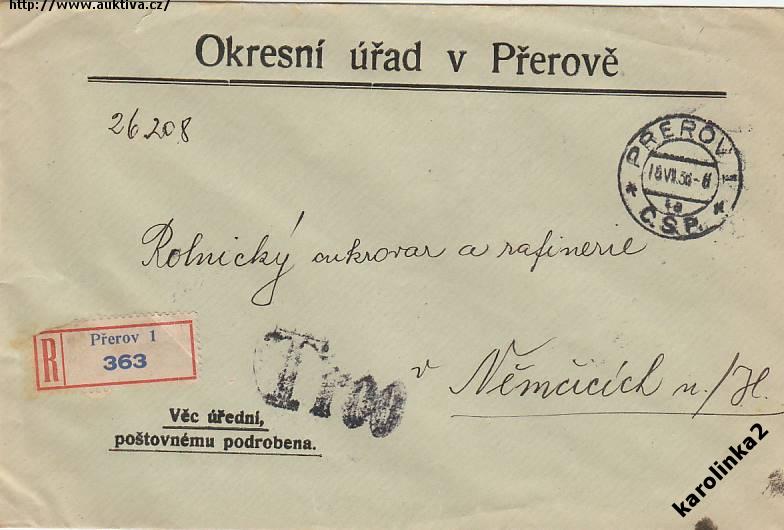 http://www.auktiva.cz/
Okresní úřad v Přerově
26208
PŘEROV 1
18VII.36-8
1a
Č.S.P.
Rolnický cukrovar a rafinerie
R
Přerov 1
363
v Němčicích n./H.
Věc úřední,
poštovnému podrobena.
karolinka2